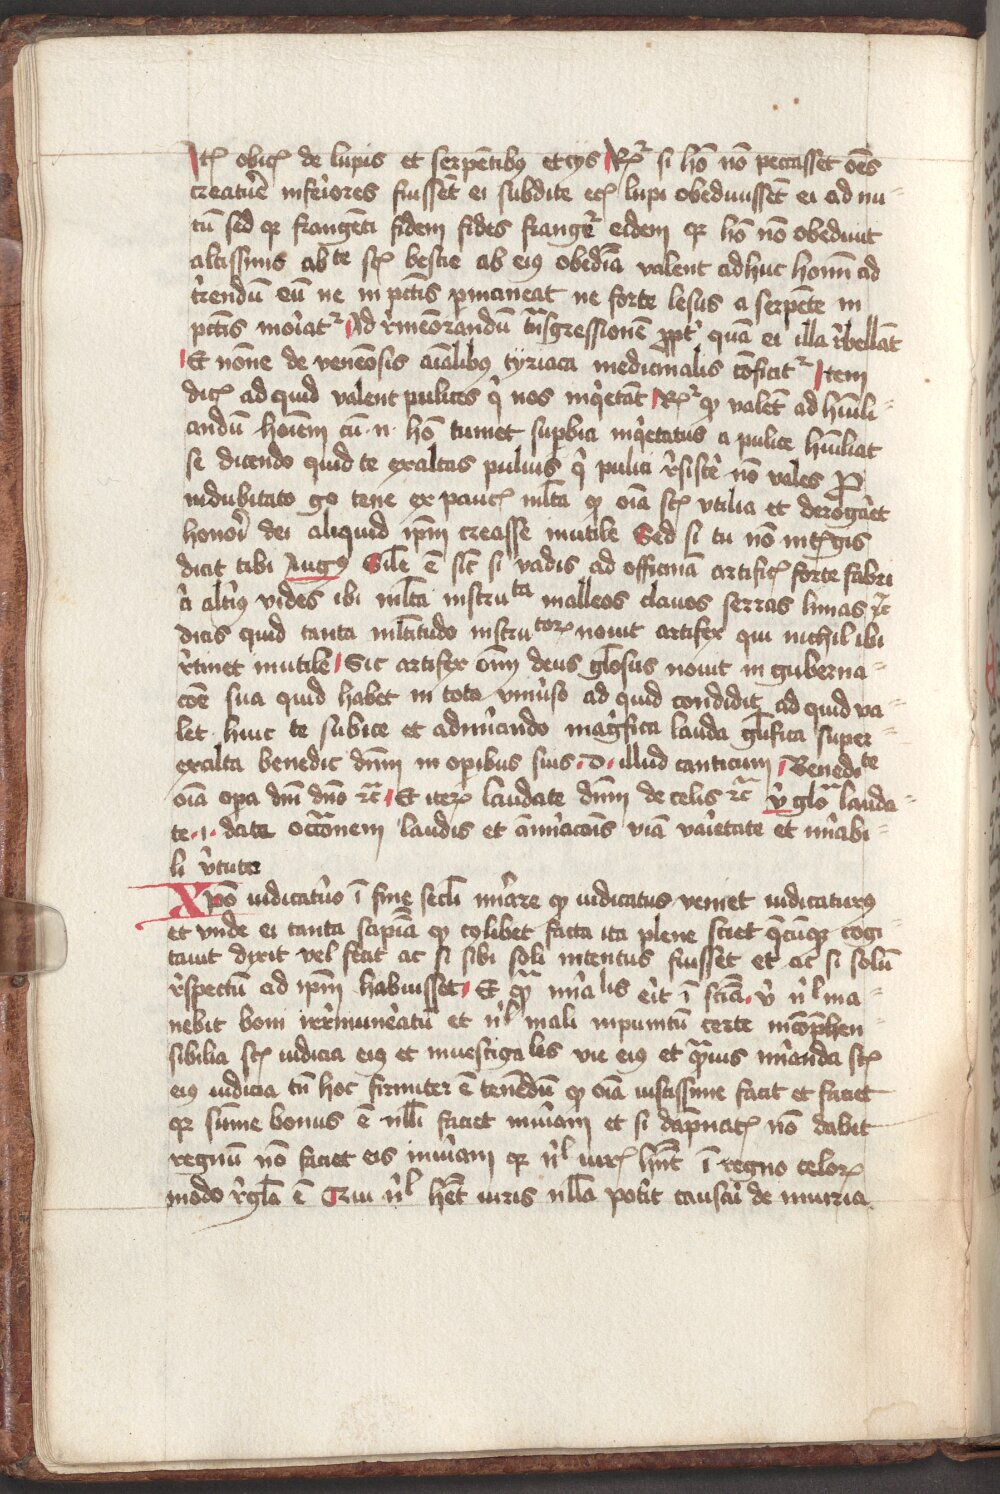 Itē obicē de lupis et serpētibus etcys Rx si hō nō peccasset oēs
creatur̄e inferiores fuissēt ei subdite etē lupi obediuissēt ei ad nu-
tū sed qr frangēti fidem fides frangr̄ eidem qr hō nō obediuit
altissimo abte sūt bestie ab eiꝰ obediā valent adhuc homī ad
tr̄rendū eū ne in pctīs pmaneat ne forte lesus a serpēte in
pctīs moriatr Ad rmēorandū trāsgressionē ppt quā ei illa rbellāt
Et nōne de venēosis aīalibꝰ tyriaca medicinalis cōficitr Item
dicē ad quid valent pulices q̄ nos inq̄etāt Rx qd valēt ad hūili-
andū hoīem cū .n. hō tumet supbia inq̄etatus a pulice hūiliat
se dicendo quid te exaltas puluis q̄ pulici rsistē nō vales P
indubitato go tene ex paucē mlta qd oīa sūt vtilia et derogaēt
honorī dei aliquid ip̄m creasse inutile Sed si tu nō intēgis
dicit tibi Augꝰ Sile ē sic si vadis ad officinā artificē forte fabri
ā altiꝰ vides ibi mlta instruta malleos clauos serras limas rc
dicas quid tanta mltitudo instrutorꝫ nouit artifex qui nichil ibi
rtinet inutile Sic artifex oīm deus gl̄osus nouit in guberna-
cōe sua quid habet in toto vniuso ad quid condidit ad quid va-
let huic te subice et admirando magifica lauda glifica super-
exalta benedic dnm in opibus suis .D. illud canticum Benedite
oīa opa dm dno rc Et iterꝫ laudate dnm de celis rc v glo lauda-
te .i. date occōnem laudis et amiracōis viā vaietate et mirabi-
li vtute
Xpō iudicatūo ī fine secli mirare qd iudicatus veniet iudicaturꝰ
et vnde ei tanta sapīa qd cꝰlibet facta ita plene sciet qcūqꝫ cogi
tauit dixit vel fecit ac si sibi soli intentus fuisset et ac si solū
rspectū ad ip̄m habuisset Et qā mirālis erit ī scīa v nl ma-
nebit boni irrmuneratū et nl mali inpunitū certe incōphen-
sibilia sūt iudicia eiꝰ et inuestigales vie eiꝰ et quāuis miranda sūt
eiꝰ iudicia tn hoc firmiter ē tenēdū qd oīa iustissime facit et faciet
qr sūme bonus ē nlli faciet iniuriam et si dāpnatē nō dabit
regnū nō faciet eis iniuriam qr nl iurē hnt ī regno celorꝫ
modo rgla ē Cui nl het iuris nlla potit causari de iniuria